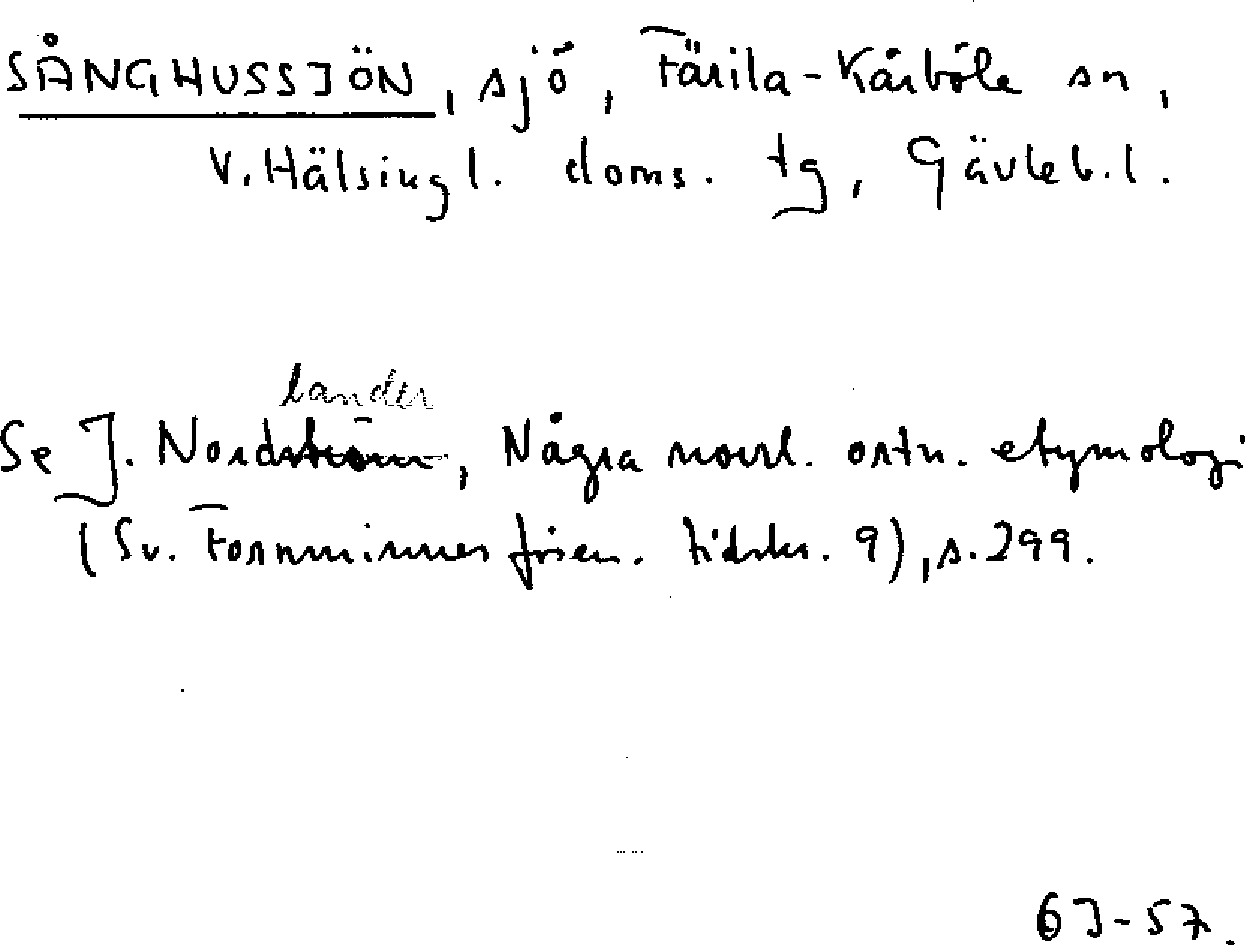 SÅNGHUSSJÖN, sjö, Färila-Kårböle sn,
V. Hälsingl. doms. tg, Gävleb. l.
lander
Se J. Nordström, Några norrl. ortn. etymologi
(Sv. Fornminnesfören. tidskr. 9), s. 299.
GJ-57.